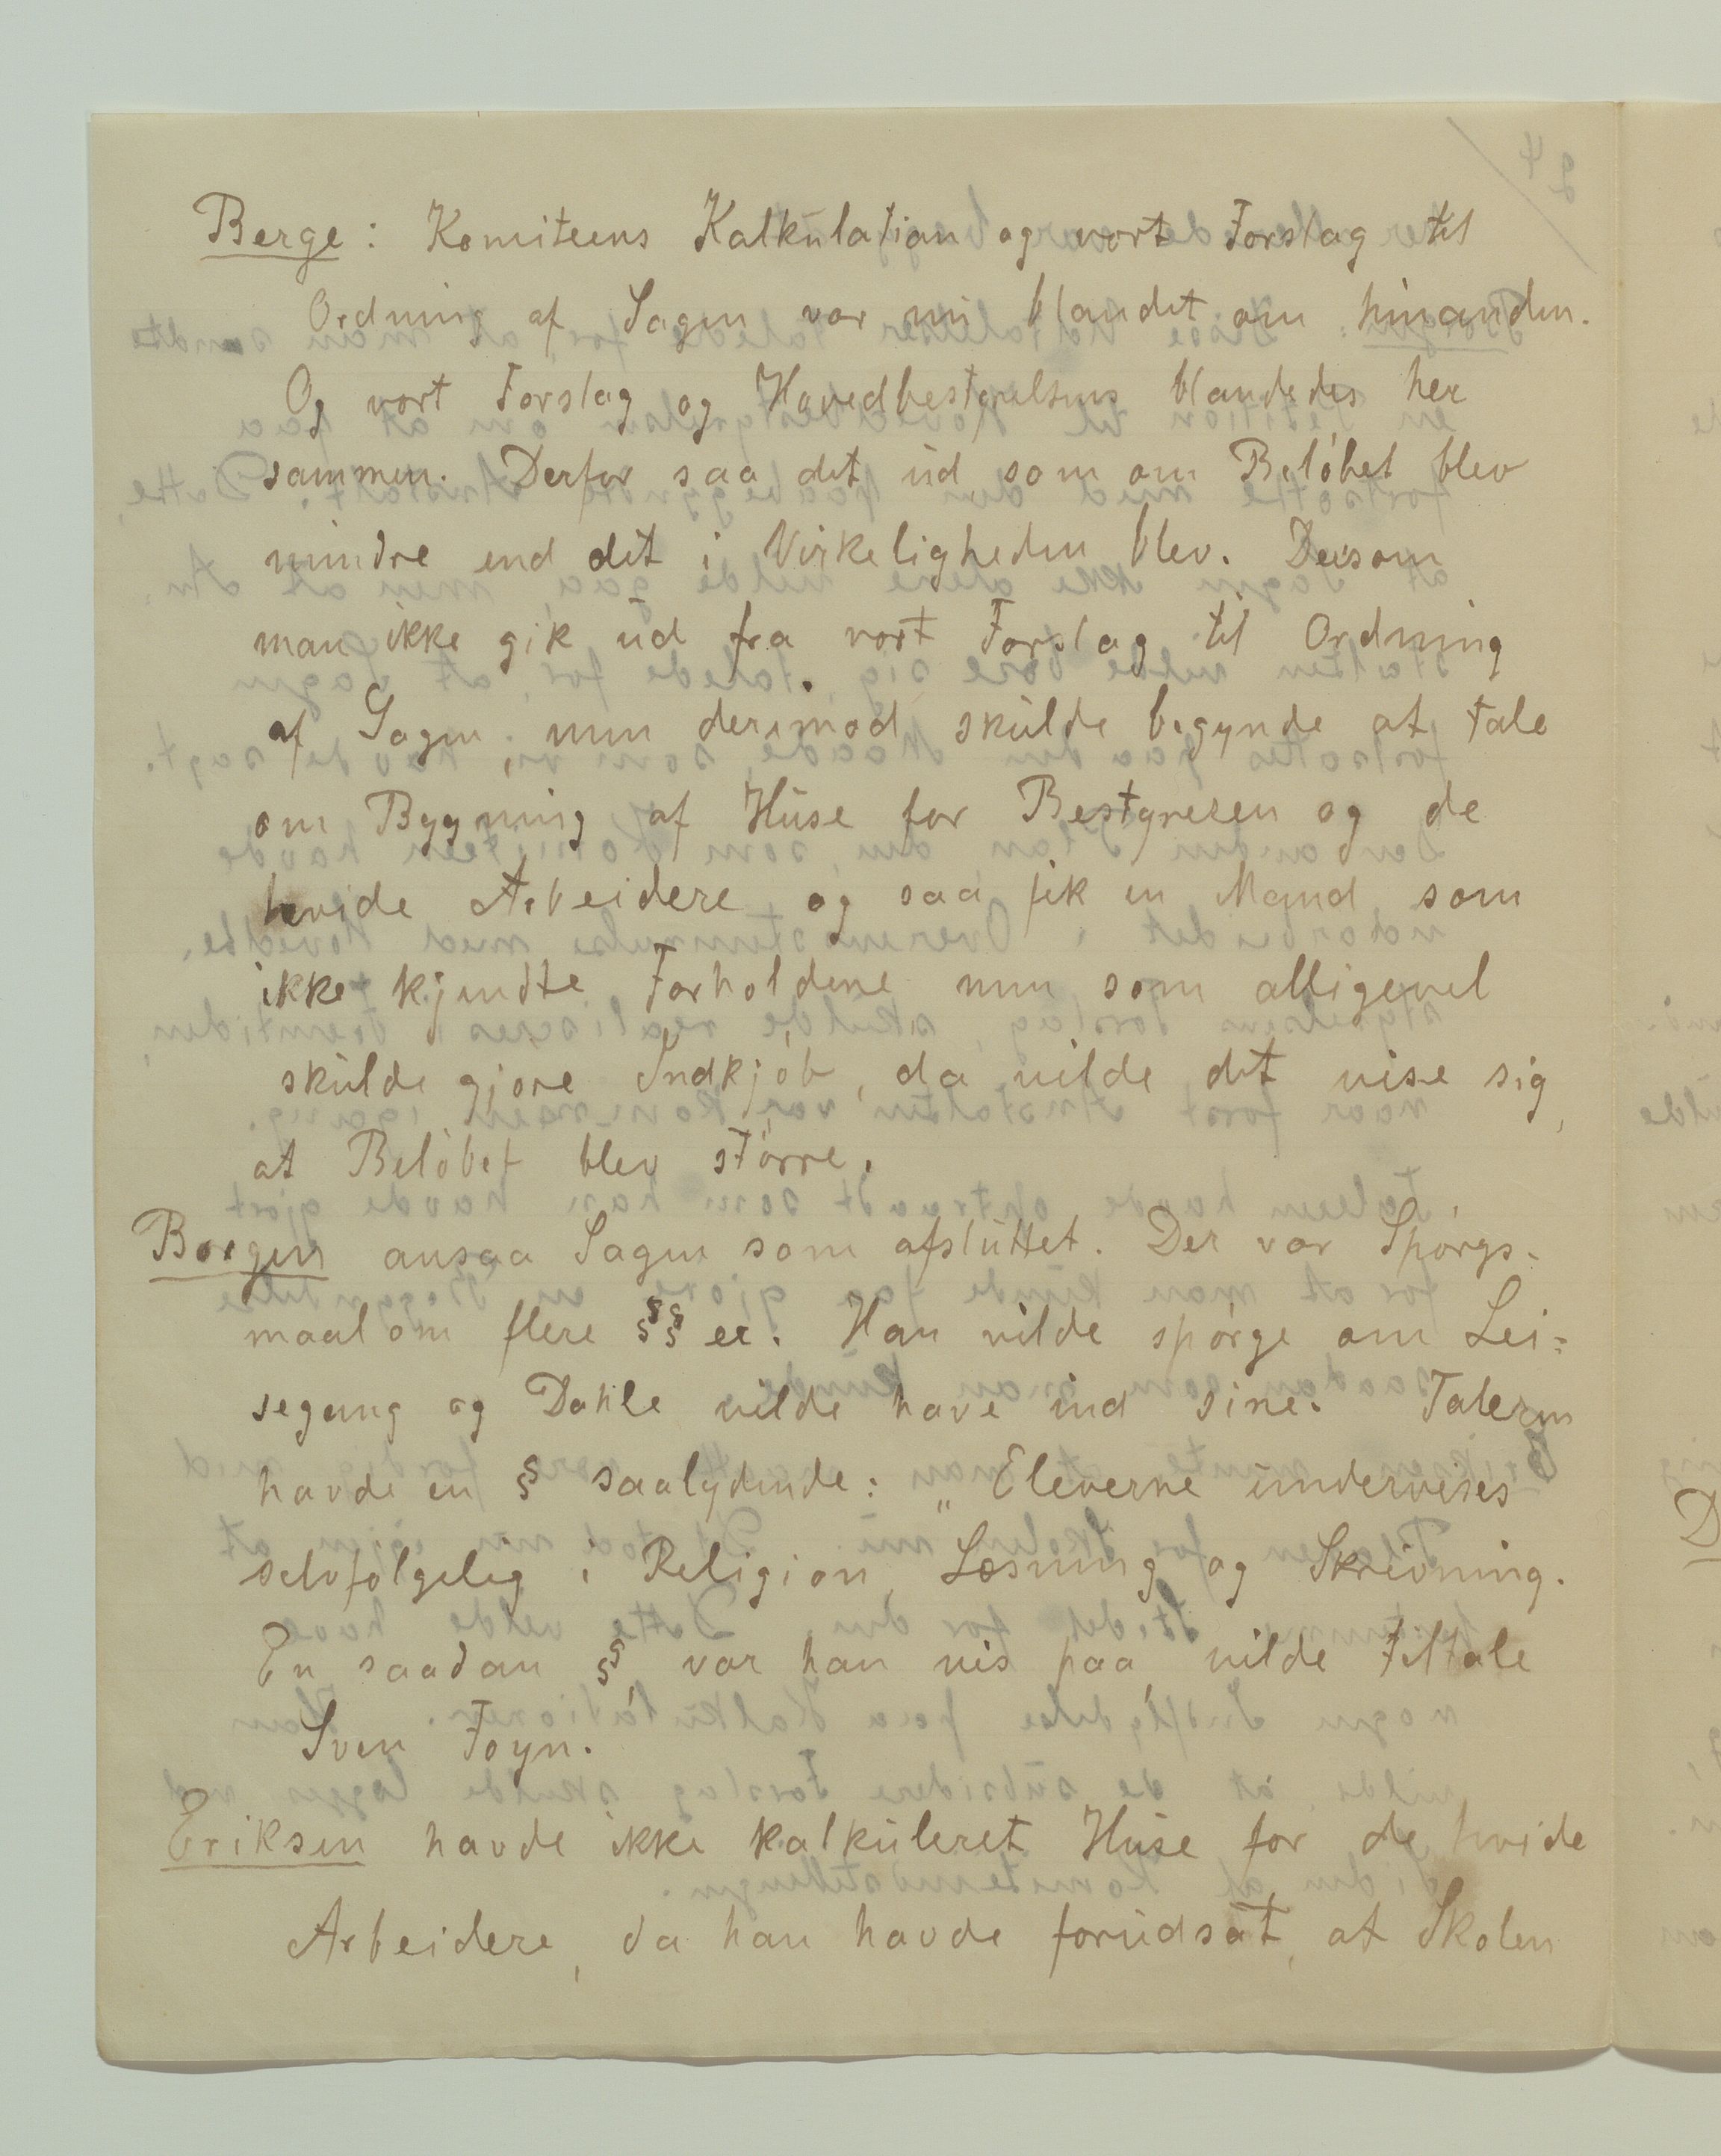 Berge: Komiteens Kalkulation og vort Forslag til
Ordning af Sagen var nu blandet om hinanden.
Og vort Forslag og Hovedbestyrelsens blandedes her
sammen. Derfor saa det ud som om Beløbet blev
mindre end det i Virkeligheden blev. Dersom
man ikke gik ud fra vort Forslag til Ordning
af Sagen, men derimod skulde begynde at tale
om Bygning af Huse for Bestyreren og de
hvide Arbeidere og saa fik en Mand som
ikke kjendte Forholdene men som alligevel
skulde gjøre Indkjøb, da vilde det vise sig,
at Beløbet blev større.
Borgen ansaa Sagen som afsluttet. Der var Spørgs-
maal om flere §§ er. Han vilde spørge om Lei-
segang og Dahle vilde have ind sine. Taleren
havde en § saalydende: „Eleverne undervises
selvfølgelig i Religion, Læsning og Skrivning.
En saadan §, var han vis paa, vilde tiltale
Sven Foyn.
Eriksen havde ikke kalkuleret Huse for de hvide
Arbeidere, da han havde forudsat, at Skolen